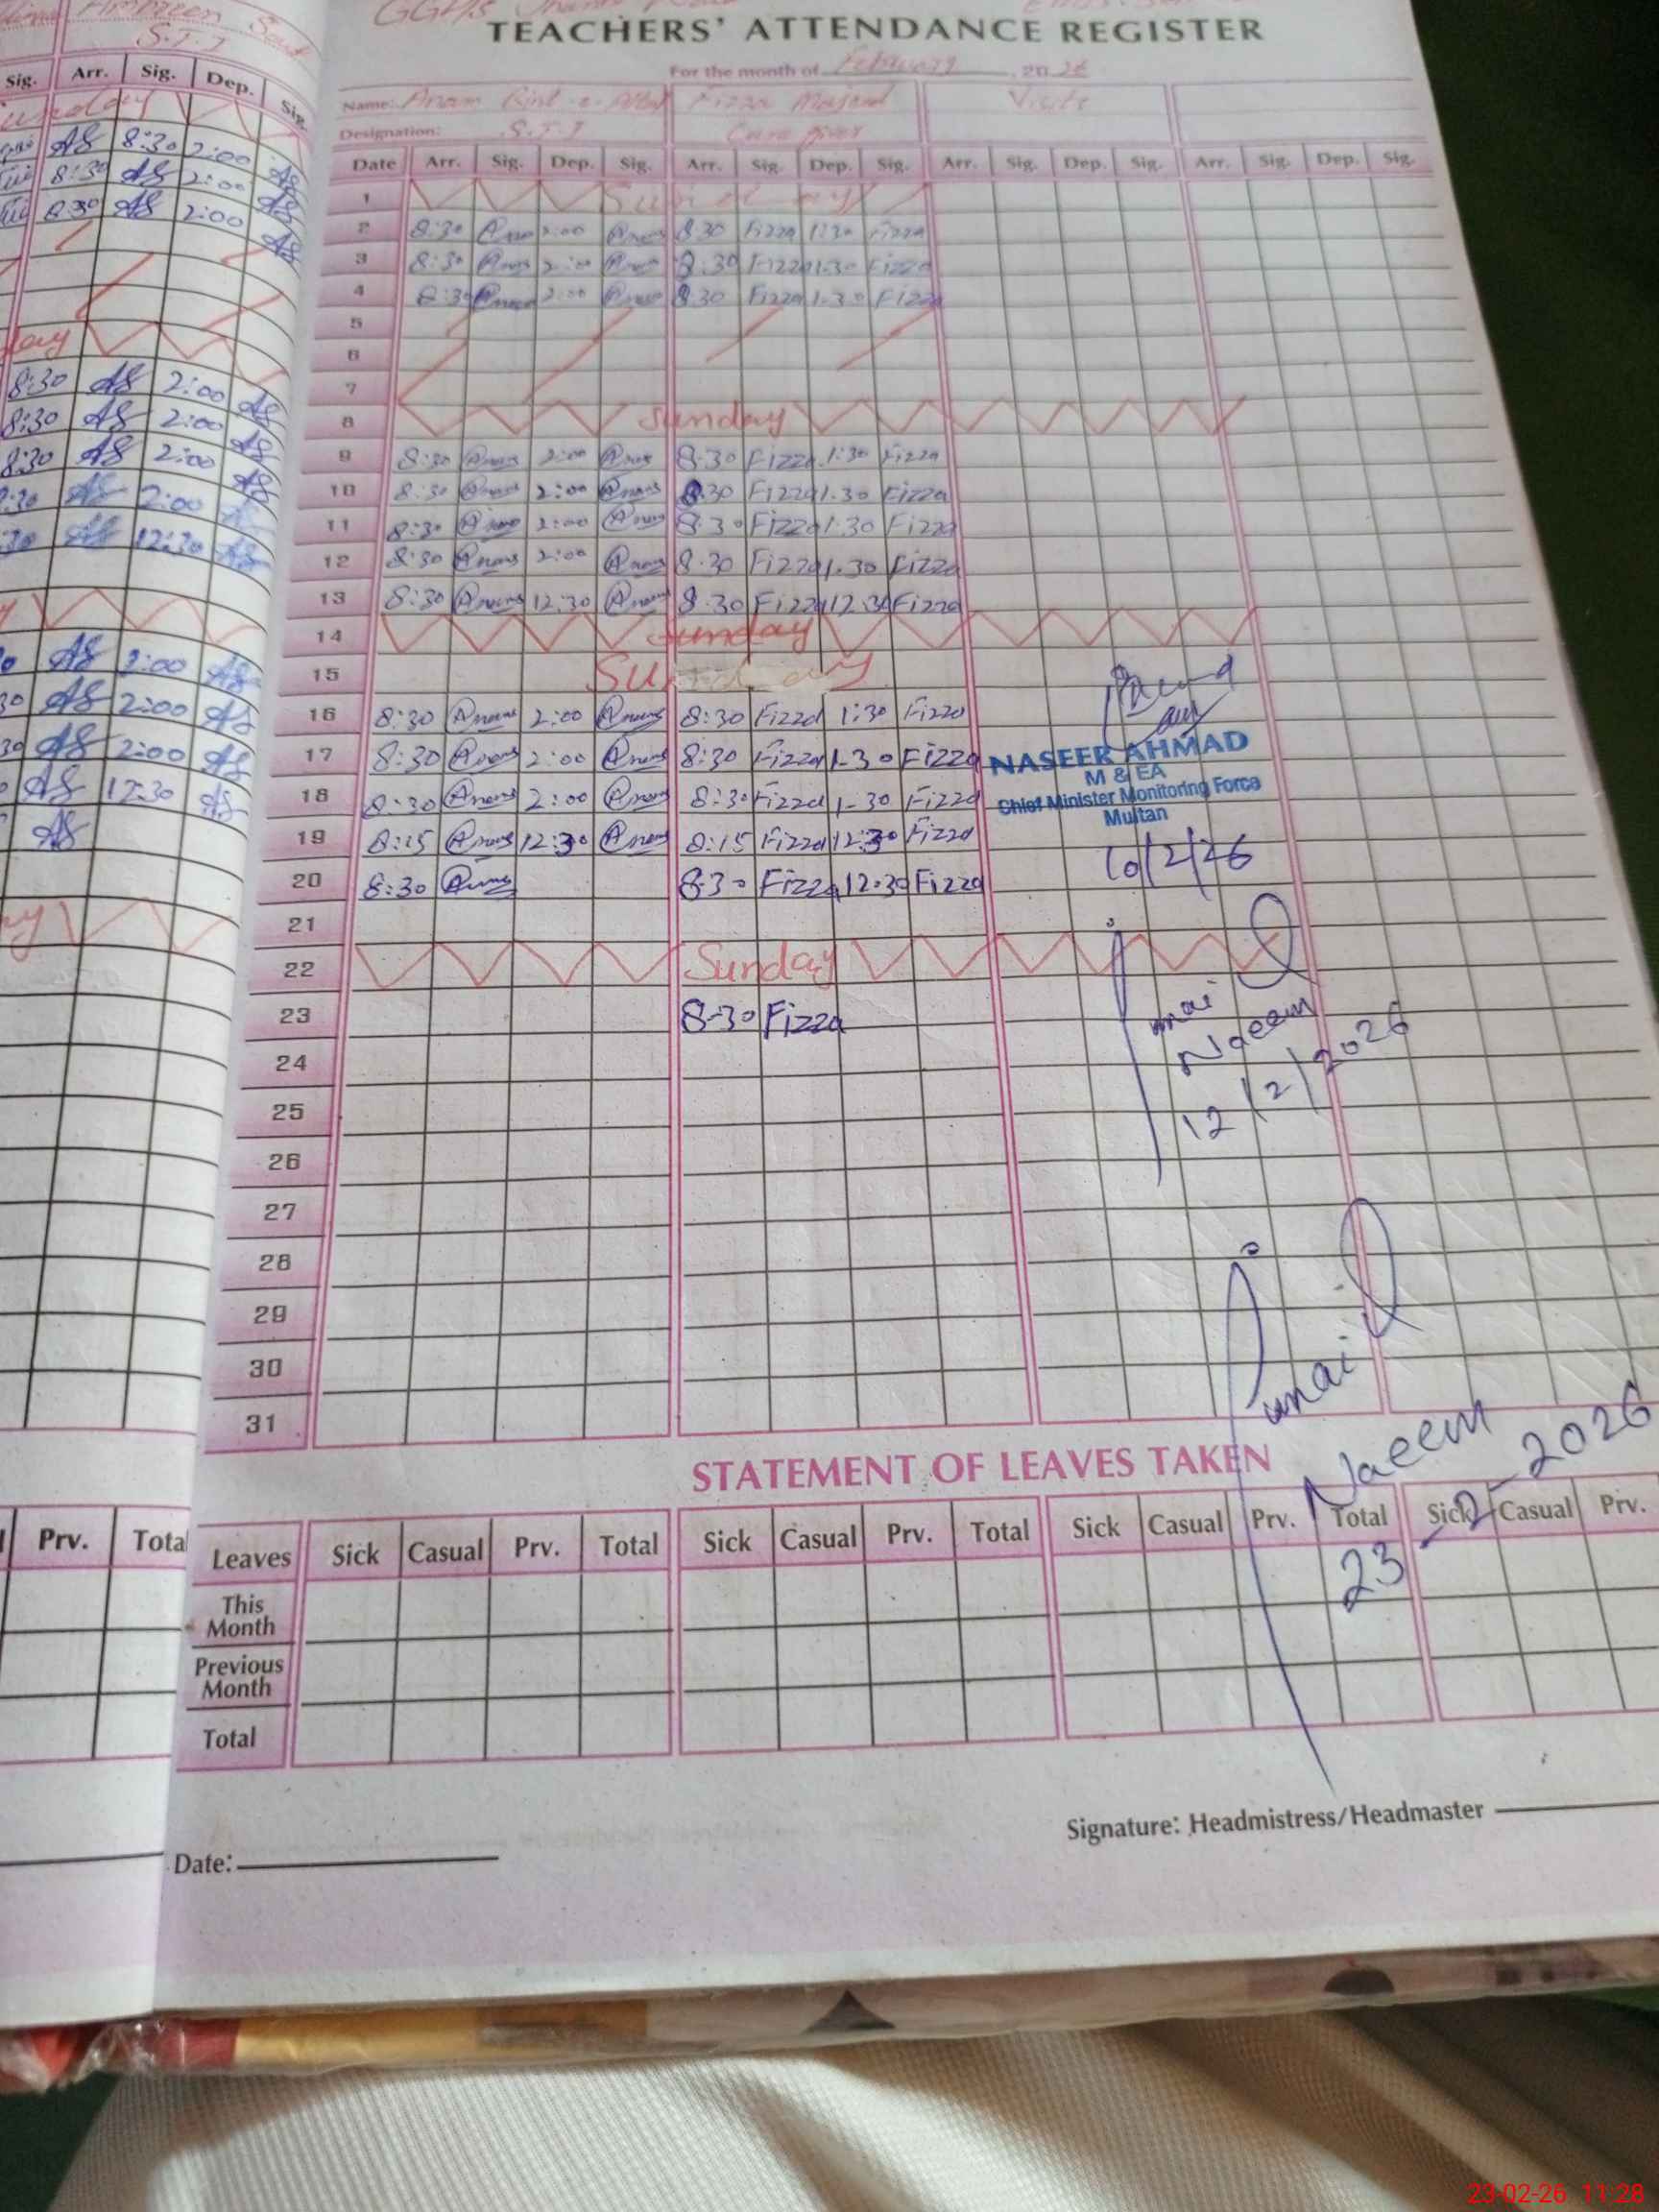 S.T.I
Sig. Arr. Sig. Dep. Sig.
AS 8:30 2:00 AS
8:30 AS 2:00 AS
8:30 AS 2:00 AS
8:30 AS 2:00 AS
8:30 AS 2:00 AS
8:30 AS 2:00 AS
AS 2:00 AS
AS 12:30 AS
AS 2:00 AS
AS 2:00 AS
AS 2:00 AS
AS 12:30 AS
AS
Prv. Total
TEACHERS' ATTENDANCE REGISTER
For the month of February, 2026
Name: Anam Fizza Majeed Visits
Designation: S.T.I Care giver
Date Arr. Sig. Dep. Sig. Arr. Sig. Dep. Sig. Arr. Sig. Dep. Sig. Arr. Sig. Dep. Sig.
1 Sunday
2 8:30 Anam 2:00 Anam 8:30 Fizza 1:30 Fizza
3 8:30 Anam 2:00 Anam 8:30 Fizza 1:30 Fizza
4 8:30 Anam 2:00 Anam 8:30 Fizza 1-30 Fizza
5
6
7
8 Sunday
9 8:30 Anam 2:00 Anam 8:30 Fizza 1:30 Fizza
10 8:30 Anam 2:00 Anam 8:30 Fizza 1.30 Fizza
11 8:30 Anam 2:00 Anam 8:30 Fizza 1.30 Fizza
12 8:30 Anam 2:00 Anam 8.30 Fizza 1.30 Fizza
13 8:30 Anam 12:30 Anam 8.30 Fizza 12.30 Fizza
14 Sunday
15 Sunday
16 8:30 Anam 2:00 Anam 8:30 Fizza 1:30 Fizza
17 8:30 Anam 2:00 Anam 8:30 Fizza 1-30 Fizza
18 8:30 Anam 2:00 Anam 8:30 Fizza 1-30 Fizza
19 8:15 Anam 12:30 Anam 8:15 Fizza 12:30 Fizza
20 8:30 Anam 8:30 Fizza 12.30 Fizza
21
22 Sunday
23 8-30 Fizza
24
25
26
27
28
29
30
31
NASEER AHMAD
M & EA
Chief Minister Monitoring Force
Multan
10/2/26
Junaid
Naeem
12/2/2026
Junaid
Naeem
23-2-2026
STATEMENT OF LEAVES TAKEN
Leaves Sick Casual Prv. Total Sick Casual Prv. Total Sick Casual Prv. Total Sick Casual Prv.
This Month
Previous Month
Total
Signature: Headmistress/Headmaster
Date:
23-02-26 11:28